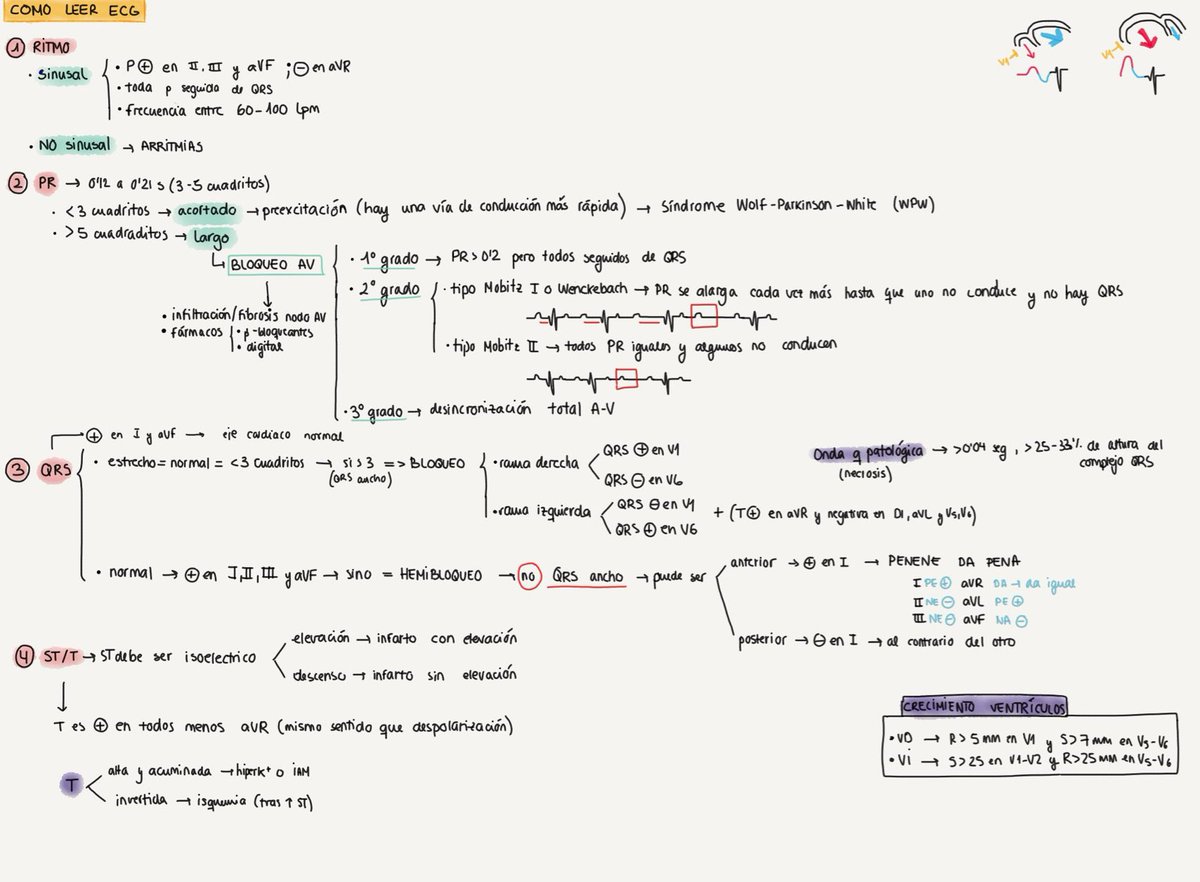 COMO LEER ECG
① RITMO
· Sinusal
· P⊕ en II, III y aVF ; ⊖ en aVR
· toda p seguido de QRS
· frecuencia entre 60-100 lpm
· NO sinusal → ARRITMIAS
② PR → 0'12 a 0'21 s (3-5 cuadritos)
· <3 cuadritos → acortado → preexcitación (hay una vía de conducción más rápida) → Síndrome Wolf-Parkinson-White (WPW)
· >5 cuadraditos → largo
BLOQUEO AV
• infiltración/fibrosis nodo AV
• fármacos
• β-bloqueantes
• digital
· 1º grado → PR>0'2 pero todos seguidos de QRS
· 2º grado
· tipo Mobitz I o Wenckebach → PR se alarga cada vez más hasta que uno no conduce y no hay QRS
· tipo Mobitz II → todos PR iguales y algunos no conducen
· 3º grado → desincronización total A-V
③ QRS
⊕ en I y aVF → eje cardiaco normal
· estrecho = normal = <3 cuadritos → si >3 => BLOQUEO
(QRS ancho)
· rama derecha
QRS ⊕ en V1
QRS ⊖ en V6
· rama izquierda
QRS ⊖ en V1
QRS ⊕ en V6
+ (T⊕ en aVR y negativa en DI, aVL y V5, V6)
Onda q patológica → >0'04 sg, >25-33% de altura del
(necrosis)
complejo QRS
• normal → ⊕ en I, II, III y aVF → sino = HEMIBLOQUEO → no QRS ancho → puede ser
anterior → ⊕ en I → PENENE DA PENA
I PE ⊕ aVR DA → da igual
II NE ⊖ aVL PE ⊕
III NE ⊖ aVF NA ⊖
posterior → ⊖ en I → al contrario del otro
④ ST/T → ST debe ser isoelectrico
elevación → infarto con elevación
descenso → infarto sin elevación
T es ⊕ en todos menos aVR (mismo sentido que despolarización)
T
alta y acuminada → hiperK⁺ o IAM
invertida → isquemia (tras ↑ ST)
CRECIMIENTO VENTRÍCULOS
• VD → R>5mm en V1 y S>7mm en V5-V6
• VI → S>25 en V1-V2 y R>25mm en V5-V6
V1
V1